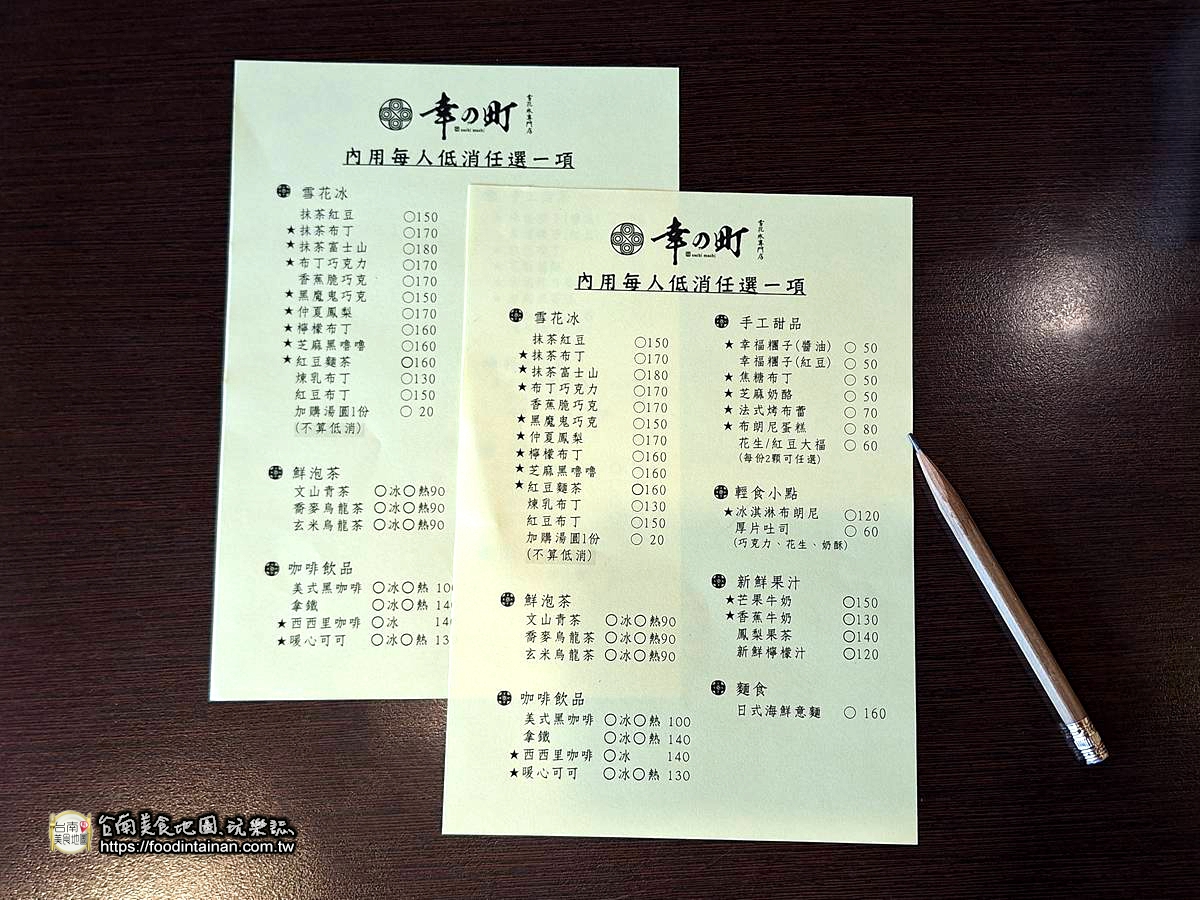 幸の町
雪花冰專門店
sachi machi
內用每人低消任選一項
雪花冰
抹茶紅豆 ○150
★抹茶布丁 ○170
★抹茶富士山 ○180
★布丁巧克力 ○170
香蕉脆巧克 ○170
★黑魔鬼巧克 ○150
★仲夏鳳梨 ○170
★檸檬布丁 ○160
★芝麻黑嚕嚕 ○160
★紅豆麵茶 ○160
煉乳布丁 ○130
紅豆布丁 ○150
加購湯圓1份 ○ 20
(不算低消)
鮮泡茶
文山青茶 ○冰○熱90
蕎麥烏龍茶 ○冰○熱90
玄米烏龍茶 ○冰○熱90
咖啡飲品
美式黑咖啡 ○冰○熱 100
拿鐵 ○冰○熱 14
★西西里咖啡 ○冰 14
★暖心可可 ○冰○熱 13
幸の町
雪花冰專門店
sachi machi
內用每人低消任選一項
雪花冰
抹茶紅豆 ○150
★抹茶布丁 ○170
★抹茶富士山 ○180
★布丁巧克力 ○170
香蕉脆巧克 ○170
★黑魔鬼巧克 ○150
★仲夏鳳梨 ○170
★檸檬布丁 ○160
★芝麻黑嚕嚕 ○160
★紅豆麵茶 ○160
煉乳布丁 ○130
紅豆布丁 ○150
加購湯圓1份 ○ 20
(不算低消)
鮮泡茶
文山青茶 ○冰○熱90
蕎麥烏龍茶 ○冰○熱90
玄米烏龍茶 ○冰○熱90
咖啡飲品
美式黑咖啡 ○冰○熱 100
拿鐵 ○冰○熱 140
★西西里咖啡 ○冰 140
★暖心可可 ○冰○熱 130
手工甜品
★幸福糰子(醬油) ○ 50
幸福糰子(紅豆) ○ 50
★焦糖布丁 ○ 50
★芝麻奶酪 ○ 50
★法式烤布蕾 ○ 70
★布朗尼蛋糕 ○ 80
花生/紅豆大福 ○ 60
(每份2顆可任選)
輕食小點
★冰淇淋布朗尼 ○120
厚片吐司 ○ 60
(巧克力、花生、奶酥)
新鮮果汁
★芒果牛奶 ○150
★香蕉牛奶 ○130
鳳梨果茶 ○140
新鮮檸檬汁 ○120
麵食
日式海鮮意麵 ○ 160
台南美食地圖
台南美食地圖.玩樂誌
https://foodintainan.com.tw